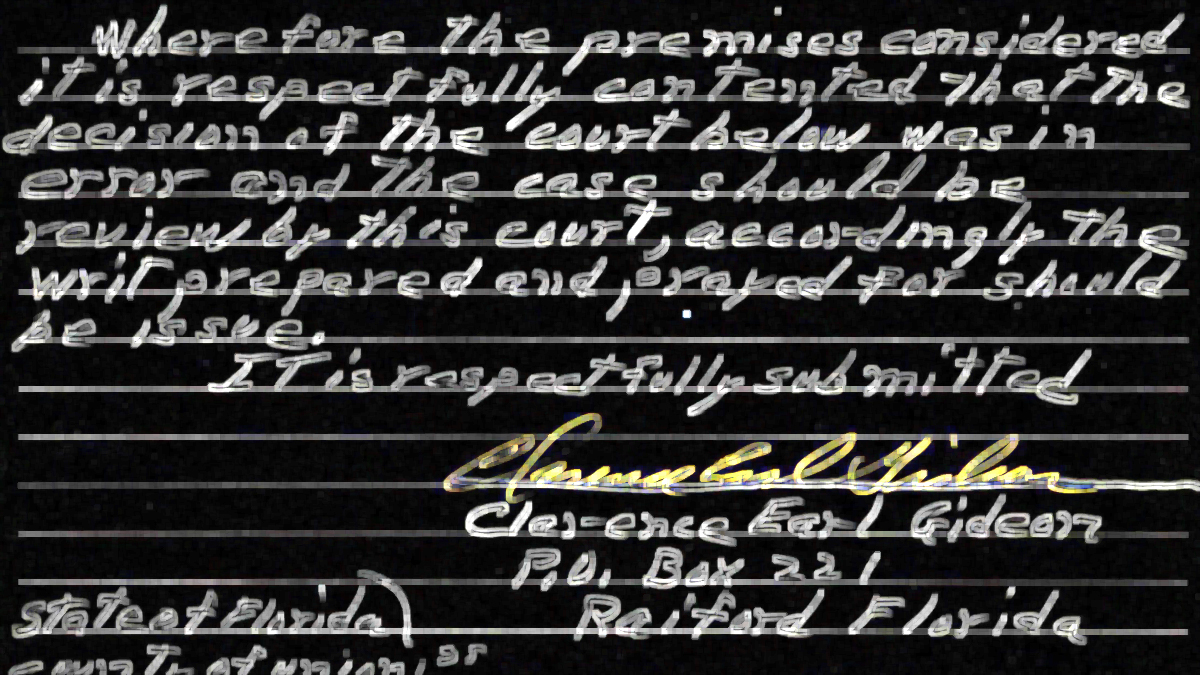 Wherefore the premises considered
it is respectfully contented that the
decision of the court below was in
error and the case should be
review by this court, accordingly the
writ, prepared and, prayed for should
be issue.
IT is respectfully submitted
Clarence Earl Gideon
Clarence Earl Gideon
P.O. Box 221
Raiford Florida
state of Florida)
county of union, ss